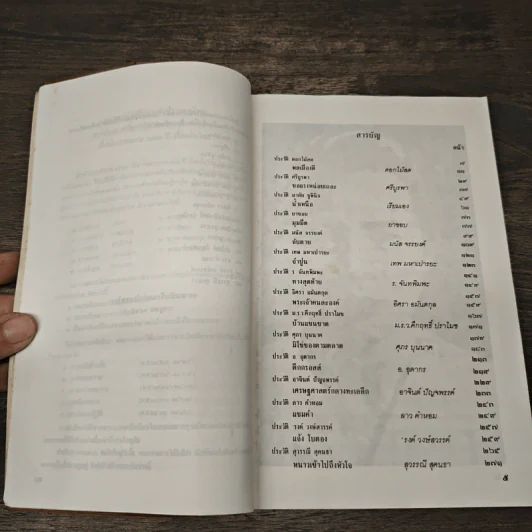 สารบัญ
หน้า
ประวัติ ดอกไม้สด ๗
พลเมืองดี ดอกไม้สด
ประวัติ ศรีบูรพา ๒๙
ขอแรงหน่อยเถอะ ศรีบูรพา ๓๗
ประวัติ มาลัย ชูพินิจ ๔๙
น้ำเหนือ เรียมเอง
ประวัติ ยาขอบ ๗๓
มุมมืด ยาขอบ ๗๗
ประวัติ มนัส จรรยงค์ ๙๙
จับตาย มนัส จรรยงค์ ๑๐๙
ประวัติ เทพ มหาเปารยะ ๑๒๑
จำปูน เทพ มหาเปารยะ ๑๒๓
ประวัติ ร. จันทพิมพะ ๑๔๑
ทางสุดท้าย ร. จันทพิมพะ ๑๔๙
ประวัติ อิศรา อมันตกุล ๑๕๗
อิศรา อมันตกุล ๑๕๙
ประวัติ ม.ร.ว.คึกฤทธิ์ ปราโมช ๑๖๗
บ้านแขนขาด ม.ร.ว.คึกฤทธิ์ ปราโมช ๑๗๑
ประวัติ ศุภร บุนนาค ๑๗๙
มิใช่ของตามตลาด ศุภร บุนนาค ๑๘๓
ประวัติ อ. อุดากร ๒๑๓
ตึกกรอสส์ อ. อุดากร ๒๑๓
ประวัติ อาจินต์ ปัญจพรรค์ ๒๒๙
เศรษฐศาสตร์กลางทะเลลึก อาจินต์ ปัญจพรรค์ ๒๓๓
ประวัติ ลาว คำหอม ๒๔๓
แขมคำ ลาว คำหอม ๒๔๙
ประวัติ 'รงค์ วงษ์สวรรค์ ๒๕๗
แจ้ง ใบตอง 'รงค์ วงษ์สวรรค์ ๒๕๙
ประวัติ สุวรรณี สุคนธา ๒๖๕
หนาวเข้าไปถึงหัวใจ สุวรรณี สุคนธา ๒๗๑
๕